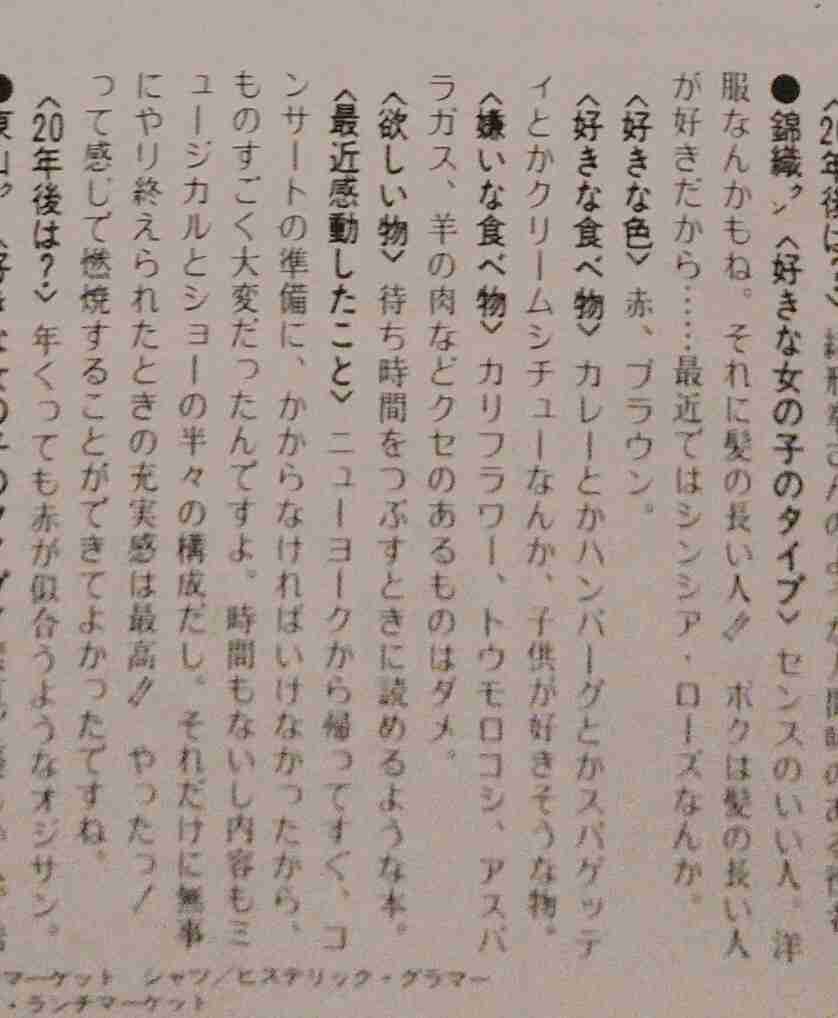 〈20年後は？〉
●錦織クン〈好きな女の子のタイプ〉センスのいい人。洋
服なんかもね。それに髪の長い人!! ボクは髪の長い人
が好きだから……最近ではシンシア・ローズなんか。
〈好きな色〉赤、ブラウン。
〈好きな食べ物〉カレーとかハンバーグとかスパゲッテ
ィとかクリームシチューなんか、子供が好きそうな物。
〈嫌いな食べ物〉カリフラワー、トウモロコシ、アスパ
ラガス、羊の肉などクセのあるものはダメ。
〈欲しい物〉待ち時間をつぶすときに読めるような本。
〈最近感動したこと〉ニューヨークから帰ってすぐ、コ
ンサートの準備に、かからなければいけなかったから、
ものすごく大変だったんですよ。時間もないし内容もミ
ュージカルとショーの半々の構成だし。それだけに無事
にやり終えられたときの充実感は最高!! やったっ！
って感じで燃焼することができてよかったですね。
〈20年後は？〉年くっても赤が似合うようなオジサン。
●東山
マーケット シャツ／ヒステリック・グラマー
・ランチマーケット